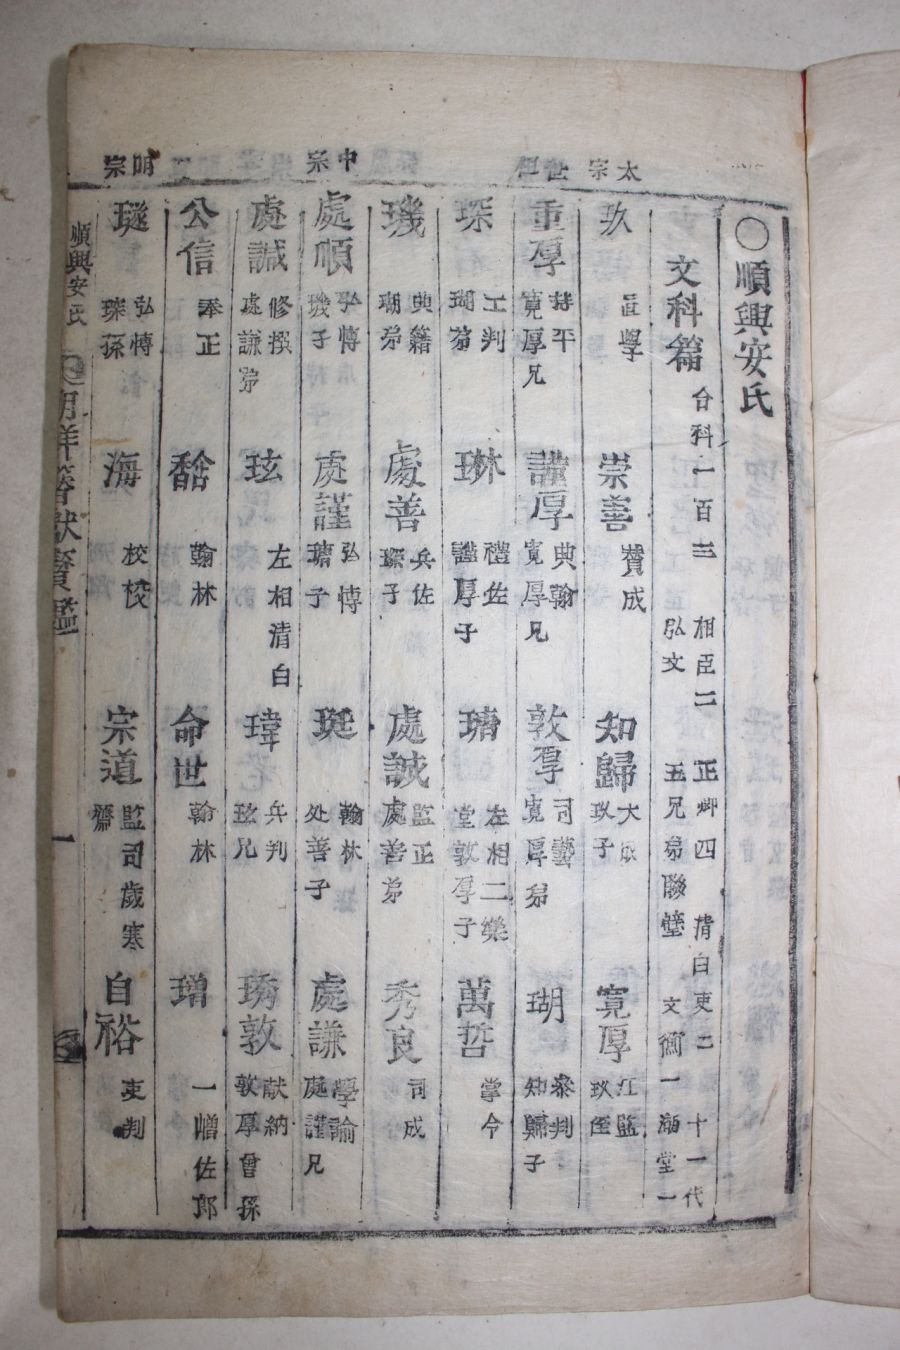 太宗
世祖
中宗
明宗
〇順興安氏
文科篇 合科一百三 相臣二 正卿四 清白吏二 十一代弘文 五兄弟聯璧 文衡一 湖堂一
玖 直學 崇善 贊成 知歸 大成玖子 寬厚 江監玖侄
重厚 持平寬厚兄 謹厚 典翰寬厚兄 敦厚 司藝寬厚弟 瑚 參判知歸子
琛 工判瑚弟 琳 禮佐謹厚子 瑭 左相二樂堂敦厚子 萬哲 掌令
璣 典籍瑚弟 處善 兵佐琛子 處誠 監正處善弟 秀良 司成
處順 弘博璣子 處謹 弘博瑭子 珽 翰林处善子 處謙 學諭處謹兄
處諴 修撰處謙弟 玹 左相清白 瑋 兵判玹兄 琇敦 献納敦厚曾孫
公信 奉正 馠 翰林 命世 翰林 璔 一嶒佐郎
璲 弘博琛孫 海 校校 宗道 監司歲寒齋 自裕 吏判
順興安氏 朝鮮簪獻寶鑑 一